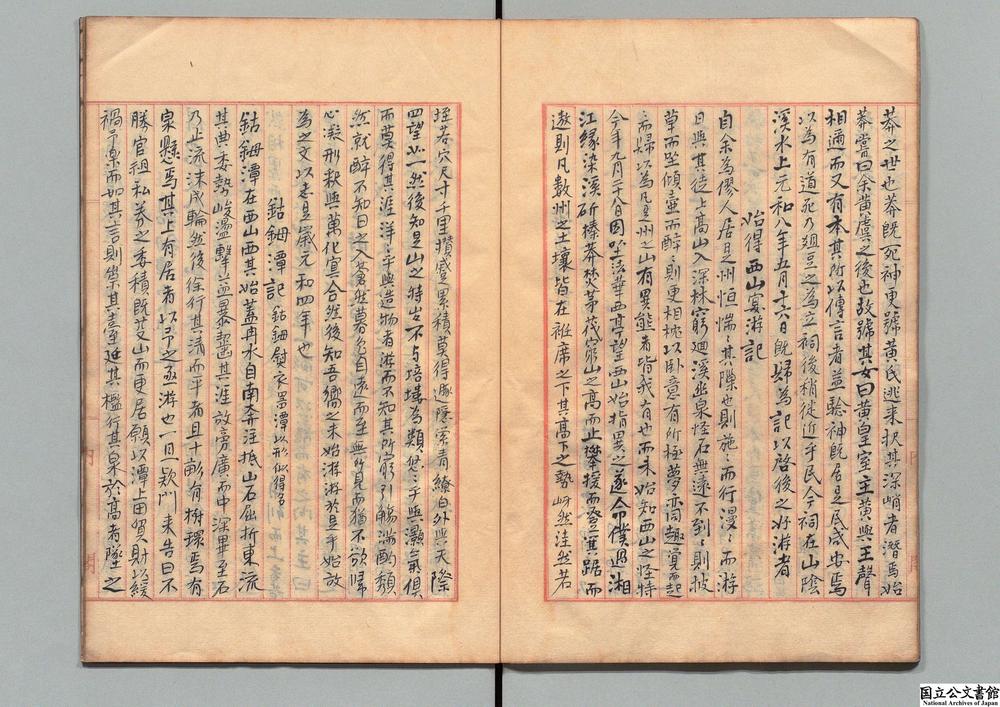 莽之世也莽既死神更號黃氏逃来択其深峭者潛焉始
莽嘗曰余黄虞之後也故號其女曰黄皇室主黄與王聲
相邇而又有本其所以傳言者益驗神既居是民咸安焉
以為有道死乃俎豆之為立祠後稍徙近乎民今祠在山陰
溪水上元和八年五月十六日既歸為記以啓後之好游者
始得西山宴游記
自余為僇人居是州恒惴々其隙也則施々而行漫々而游
日與其徒上高山入深林窮廻溪幽泉怪石無遠不到々則披
草而坐傾壷而醉々則更相枕以卧意有所極夢亦同趣覚而起
而歸以為凡是州之山有異態者皆我有也而未始知西山之怪特
今年九月二十八日因坐法華西亭望西山始指異之遂命僕過湘
江縁染溪斫榛莽焚茅茷窮山之高而止攀援而登箕踞而
遨則凡数州之土壤皆在袵席之下其高下之勢岈然洼然若
垤若穴尺寸千里攅蹙累積莫得遯隠縈青繚白外與天際
四望如一然後知是山之特出不与培塿為類悠々乎與灝氣俱
而莫得其涯洋々乎與造物者游而不知其所窮引觴満酌頽
然就醉不知日之入蒼然暮色自遠而至至無所見而猶不欲歸
心凝形釈與萬化冥合然後知吾嚮之未始游游於是乎始故
為之文以志是歳元和四年也
鈷鉧潭記 鈷鉧熨衣器潭以形似得名
鈷鉧潭在西山西其始蓋冉水自南奔注抵山石屈折東流
其典委勢峻盪擊益暴齧其涯故旁廣而中深畢至石
乃止流沫成輪然後徐行其清而平者且十畝有樹環焉有
泉懸焉其上有居者以予之亟游也一旦欵門来告曰不
勝官租私券之委積既芟山而更居願以潭上田貿財以緩
禍予楽而如其言則崇其臺延其檻行其泉於高者墜之
国立公文書館
National Archives of Japan